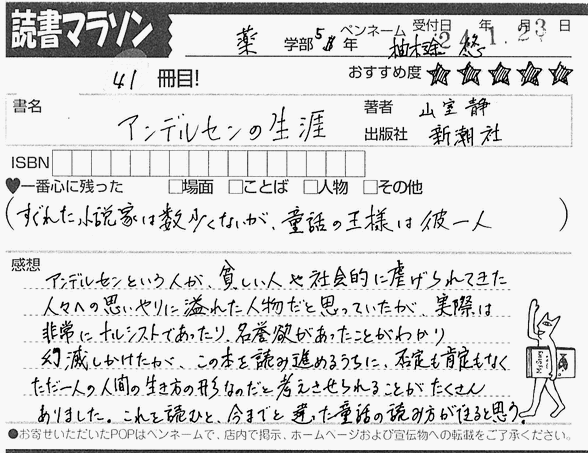 読書マラソン
薬 学部 5 年 ペンネーム 柚木 悠 受付日 24年 1.月 23 日
41 冊目!
おすすめ度 ★★★★★
書名 アンデルセンの生涯
著者 山室 静
出版社 新潮社
ISBN
♥一番心に残った □場面 □ことば □人物 □その他
(すぐれた小説家は数少くないが、童話の王様は彼一人)
感想
アンデルセンという人が、貧しい人や社会的に虐げられてきた
人々への思いやりに溢れた人物だと思っていたが、実際は
非常にナルシストであったり、名誉欲があったことがわかり
幻滅しかけたが、この本を読み進めるうちに、否定も肯定もなく
ただ一人の人間の生き方の形なのだと考えさせられることがたくさん
ありました。これを読むと、今までと違った童話の読み方が出来ると思う。
●お寄せいただいたPOPはペンネームで、店内で掲示、ホームページおよび宣伝物への転載をご了承ください。